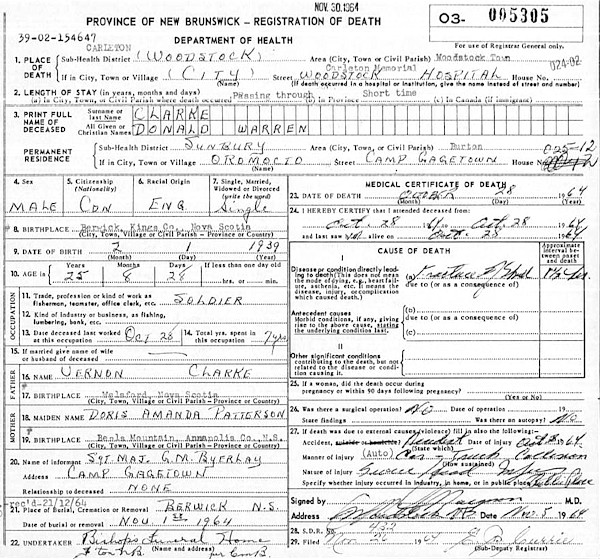 NOV. 30.1964
PROVINCE OF NEW BRUNSWICK - REGISTRATION OF DEATH
O3- 005305
39-02-154647
DEPARTMENT OF HEALTH
For use of Registrar General only.
CARLETON
1. PLACE OF DEATH
Sub-Health District (WOODSTOCK) Area (City, Town or Civil Parish) Woodstock Town
024-02
Carleton Memorial
If in City, Town or Village (CITY) Street WOODSTOCK HOSPITAL House No.
(Name) (If death occurred in a hospital or institution, give the name instead of street and number)
2. LENGTH OF STAY (in years, months and days) Passing through Short time
(a) in City, Town, or Civil Parish where death occurred (b) in Province (c) in Canada (if immigrant)
3. PRINT FULL NAME OF DECEASED
Surname or last name CLARKE
All Given or Christian Names DONALD WARREN
PERMANENT RESIDENCE
Sub-Health District SUNBURY Area (City, Town or Civil Parish) Burton 025-12
If in City, Town or Village OROMOCTO Street CAMP GAGETOWN House No.
(Name)
4. Sex 5. Citizenship (Nationality) 6. Racial Origin 7. Single, Married, Widowed or Divorced (write the word)
MALE CDN ENG Single
8. BIRTHPLACE Berwick, Kings Co., Nova Scotia
(City, Town, Village or Civil Parish - Province or Country)
9. DATE OF BIRTH 2 1 1939
(Month) (Day) (Year)
10. AGE in Years Months Days If less than one day old
25 8 28 hrs. or min.
OCCUPATION
11. Trade, profession or kind of work as fisherman, teamster, office clerk, etc. SOLDIER
12. Kind of industry or business, as fishing, lumbering, bank, etc.
13. Date deceased last worked at this occupation Oct 28 14. Total yrs. spent in this occupation 7 yrs
15. If married give name of wife or husband of deceased
FATHER
16. NAME VERNON CLARKE
17. BIRTHPLACE Welsford, Nova Scotia
(City, Town, Village or Civil Parish - Province or Country)
MOTHER
18. MAIDEN NAME DORIS AMANDA PATTERSON
19. BIRTHPLACE Beals Mountain, Annapolis Co., N.S.
(City, Town, Village or Civil Parish - Province or Country)
20. Name of informant SGT. MAJ. G.M. BYERLAY
Address CAMP GAGETOWN
Relationship to deceased NONE
rec'd-21/12/64
21. Place of Burial, Cremation or Removal BERWICK N.S.
Date of burial or removal NOV. 1st 1964
22. UNDERTAKER Bishop's Funeral Home
(Name and address)
MEDICAL CERTIFICATE OF DEATH
23. DATE OF DEATH October 28 1964
(Month) (Day) (Year)
24. I HEREBY CERTIFY that I attended deceased from
Oct. 28 1964 to Oct. 28 1964
and last saw alive on Oct. 28 1964
I CAUSE OF DEATH
Approximate interval between onset and death
Disease or condition directly leading to death (This does not mean the mode of dying, e.g., heart failure, asthenia, etc. It means the disease, injury, or complication which caused death.)
(a) Fracture
due to (or as a consequence of)
Antecedent causes
Morbid conditions, if any, giving rise to the above cause, stating the underlying condition last.
(b)
due to (or as a consequence of)
(c)
II
Other significant conditions contributing to the death, but not related to the disease or condition causing it.
25. If a woman, did the death occur during pregnancy or within 90 days following pregnancy?
(Yes or No)
26. Was there a surgical operation? No Date of operation 19
State findings Was there an autopsy? No
27. If death was due to external causes (violence) fill in also the following:-
Accident, suicide or homicide? Accident Date of injury Oct 28 1964
(State which)
Manner of injury (Auto) Car - truck Collision
(How sustained)
Nature of injury
Specify whether injury occurred in industry, in home, or in public place Public Place
Signed by M.D.
Address Woodstock N.B. Nov. 5 1964
28. S.D.R. No. 432
29. Filed Nov 20 1964
(Sub-Deputy Registrar)